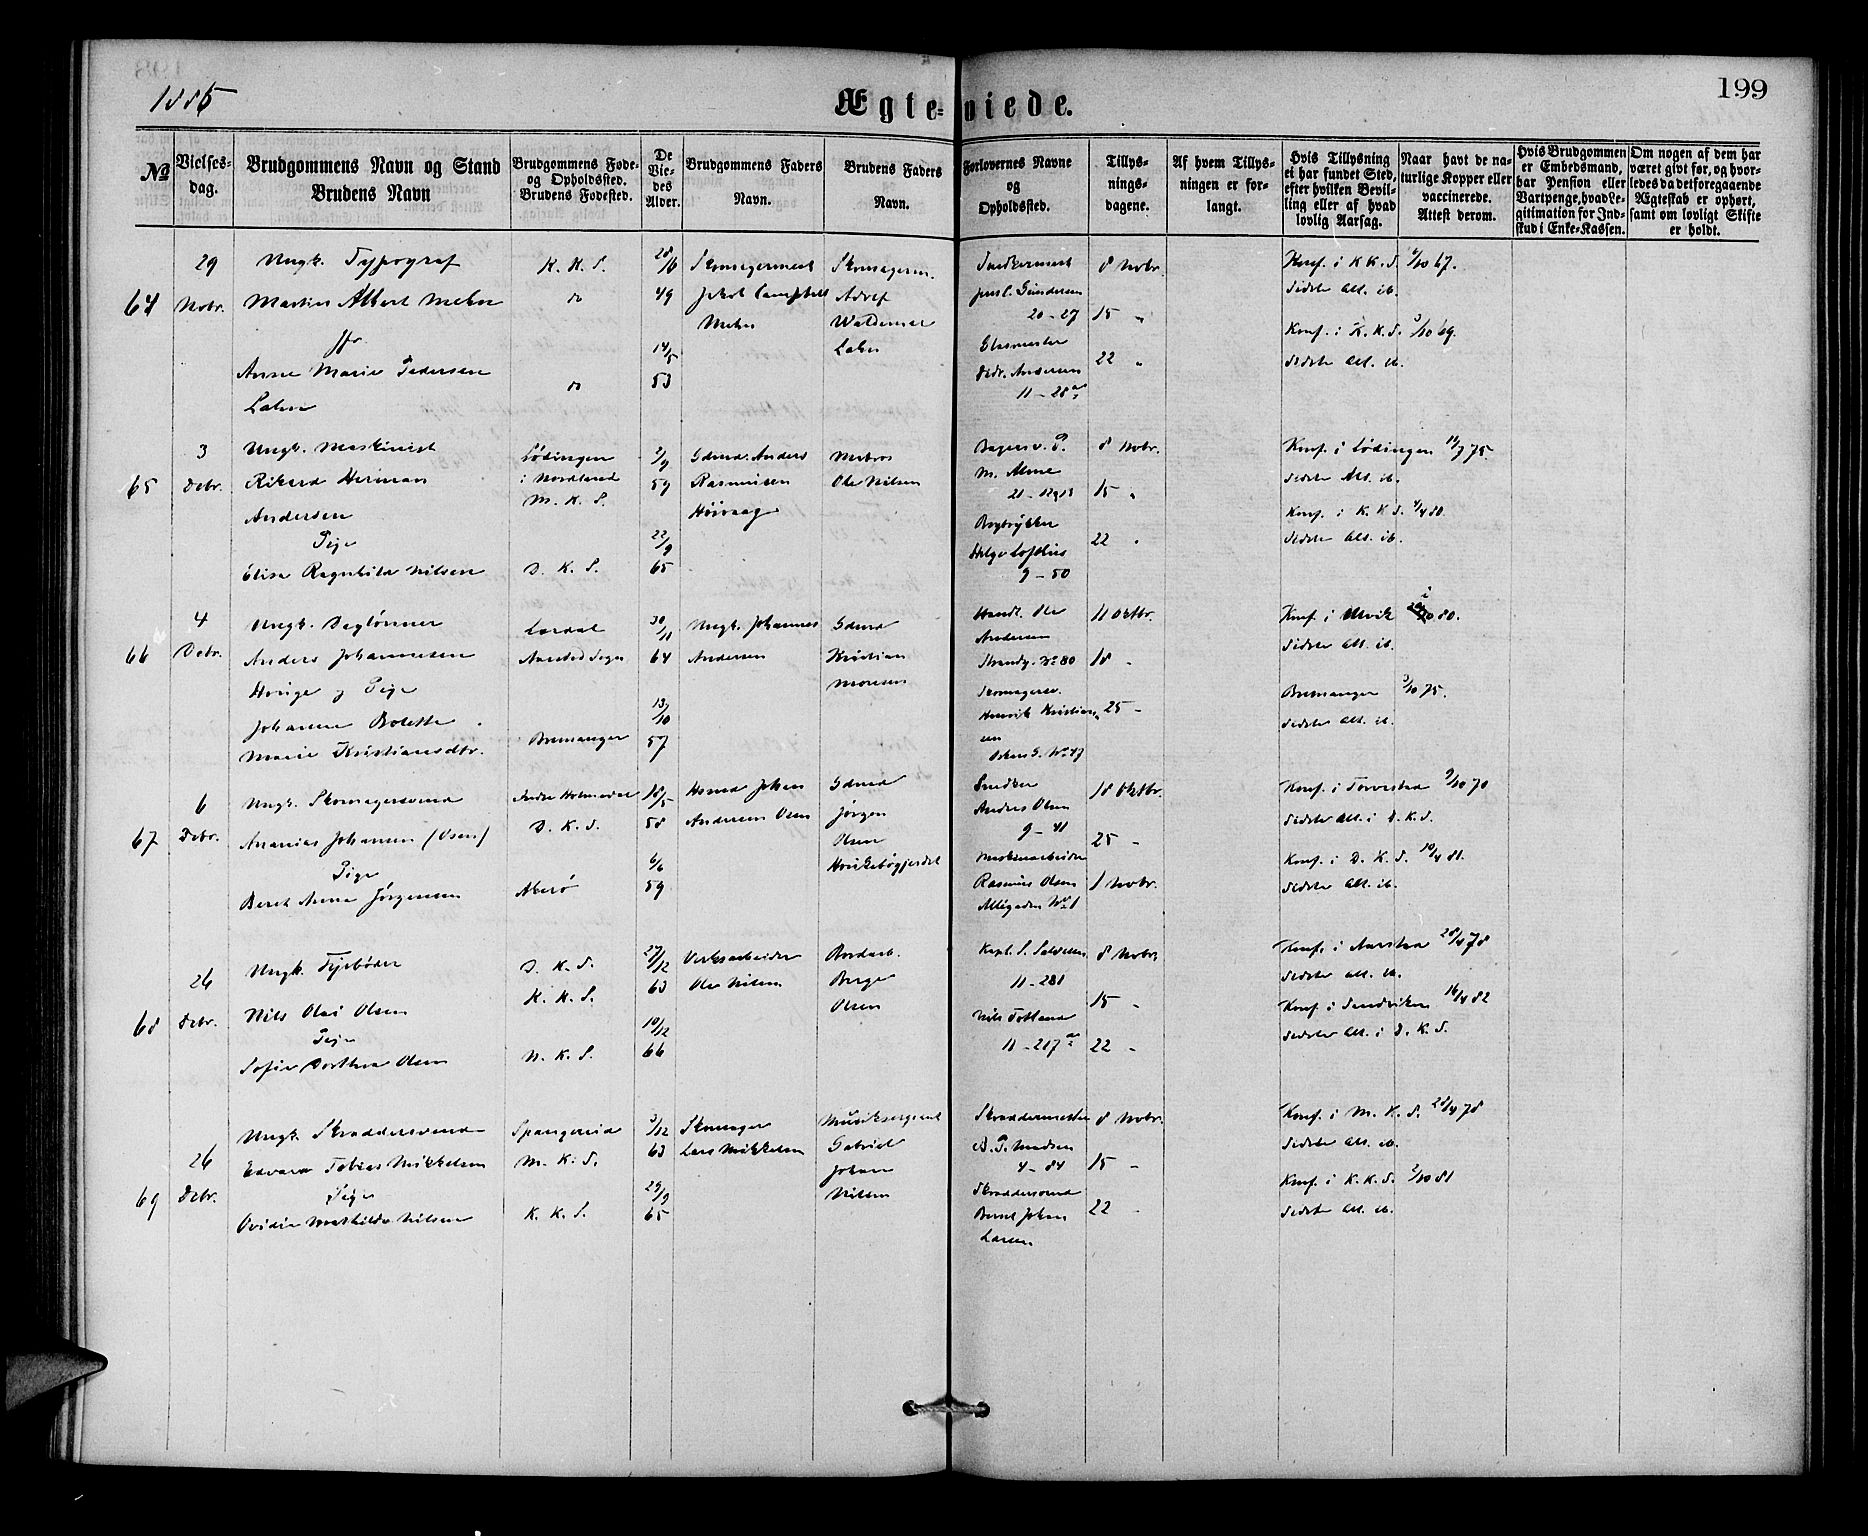 1885
Ægteviede.
199
№
Vielsesdag.
Brudgommens Navn og Stand
Brudens Navn
Brudgommens Føde-
og Opholdssted.
Brudens Fødested.
De
Vie-
des
Alder.
Brudgommens Faders
Navn.
Brudens Faders
Navn.
Forlovernes Navne
og
Opholdssted.
Tillys-
nings-
dagene.
Af hvem Tillys-
ningen er for-
langt.
Hvis Tillysning
ei har fundet Sted,
efter hvilken Bevil-
ling eller af hvad
lovlig Aarsag.
Naar havt de na-
turlige Kopper eller
vaccinerede.
Attest derom.
Hvis Brudgommen
er Embedsmand,
har Pension eller
Vartpenge, hvad Le-
gitimation for Ind-
skud i Enke-Kassen.
Om nogen af dem har
været givt før, og hvor-
ledes da det foregaaende
Ægteskab er ophørt,
samt om lovligt Skifte
er holdt.
64
29
Novbr.
Ungk. Typograf
Martin Albert
Anne Marie Pedersen
K. K. S.
do
do
28/6
49
14/5
53
Skomagermest
Skomagerm.
Adolf
Waldemar
Snedkermest
Gundersen
20-27
Glasmester
Andersen
11-28a
8 Novbr.
15 "
22 "
Konf. i K. K. S. 6/10 67.
Sidste Alt. ib.
Konf. i K. K. S. 3/10 69.
Sidste Alt. ib.
65
3
Debr.
Ungk. Maskinist
Rikard Herman
Andersen
Pige
Elise Ragnhild Nilsen
Lødingen
i Nordland
M. K. S.
D. K. S.
2/9
59
22/9
65
Gdmd. Anders
Rasmusen
Matros
Ole Nilsen
Bagersv. P.
M. Alme
Bogtrykker
Helge Lofthus
9-50
8 Novbr.
15 "
22 "
Konf. i Lødingen 11/7 75.
Sidste Alt. ib.
Konf. i K. K. S. 4/4 80.
Sidste Alt. ib.
66
4
Debr.
Ungk. Daglønner
Anders Johannesen
og Pige
Johanne Bolette
Marie Kristiansdtr.
Aarstad Sogn
Bremanger
30/11
64
13/10
57
Ungk. Johannes
Andersen
Gdmd
Kristian
Handl. Ole
Andersen
Strandg. No 80
Skomagersv.
Henrik Kristian-
sen
11 Oktbr.
18 "
25 "
Konf. i Ulvik 80.
Sidste Alt. ib.
Bremanger 3/10 75.
Sidste Alt. ib.
67
6
Debr.
Ungk. Skomagersvend
Ananias Johansen (Osen)
Pige
Berit Anna Jørgensen
Indre Holmedal
D. K. S.
Akerø
18/5
58
6/6
59
Hsmd Johan
Andersen Osen
Gdmd
Jørgen
Olsen
Snedker
Anders Olsen
9-41
Maskinarbeider
Rasmus Olsen
18 Oktbr.
25 "
1 Novbr.
Konf. i Torvestad 9/10 70
Sidste Alt. i D. K. S.
Konf. i D. K. S. 10/4 81.
Sidste Alt. ib.
68
26
Debr.
Ungk. Fyrbøder
Nils Olai Olsen
Pige
Sofie Dorthea Olsen
D. K. S.
K. K. S.
N. K. S.
27/12
63
10/12
66
Verksarbeider
Ole Nilsen
Bordarb.
Berge
Olsen
11-281
Nils Totland
11-217a
8 Novbr.
15 "
22 "
Konf. i Aarstad 28/4 78
Sidste Alt. ib.
Konf. i Sandviken 16/4 82
Sidste Alt. i D. K. S.
69
26
Debr.
Ungk. Skræddersvend
Edvard Tobias Mikkelsen
Pige
Ovidia Mathilde Nilsen
Spangereid
M. K. S.
K. K. S.
3/12
63
29/9
65
Skomager
Lars Mikkelsen
Musiksergeant
Gabriel
Johan
Nilsen
Skræddermester
A. P. Madsen
4-84
Skræddersvend
Bernt Johan
Larsen
8 Novbr.
15 "
22 "
Konf. i M. K. S. 28/4 78
Sidste Alt. ib.
Konf. i K. K. S. 2/10 81
Sidste Alt. ib.